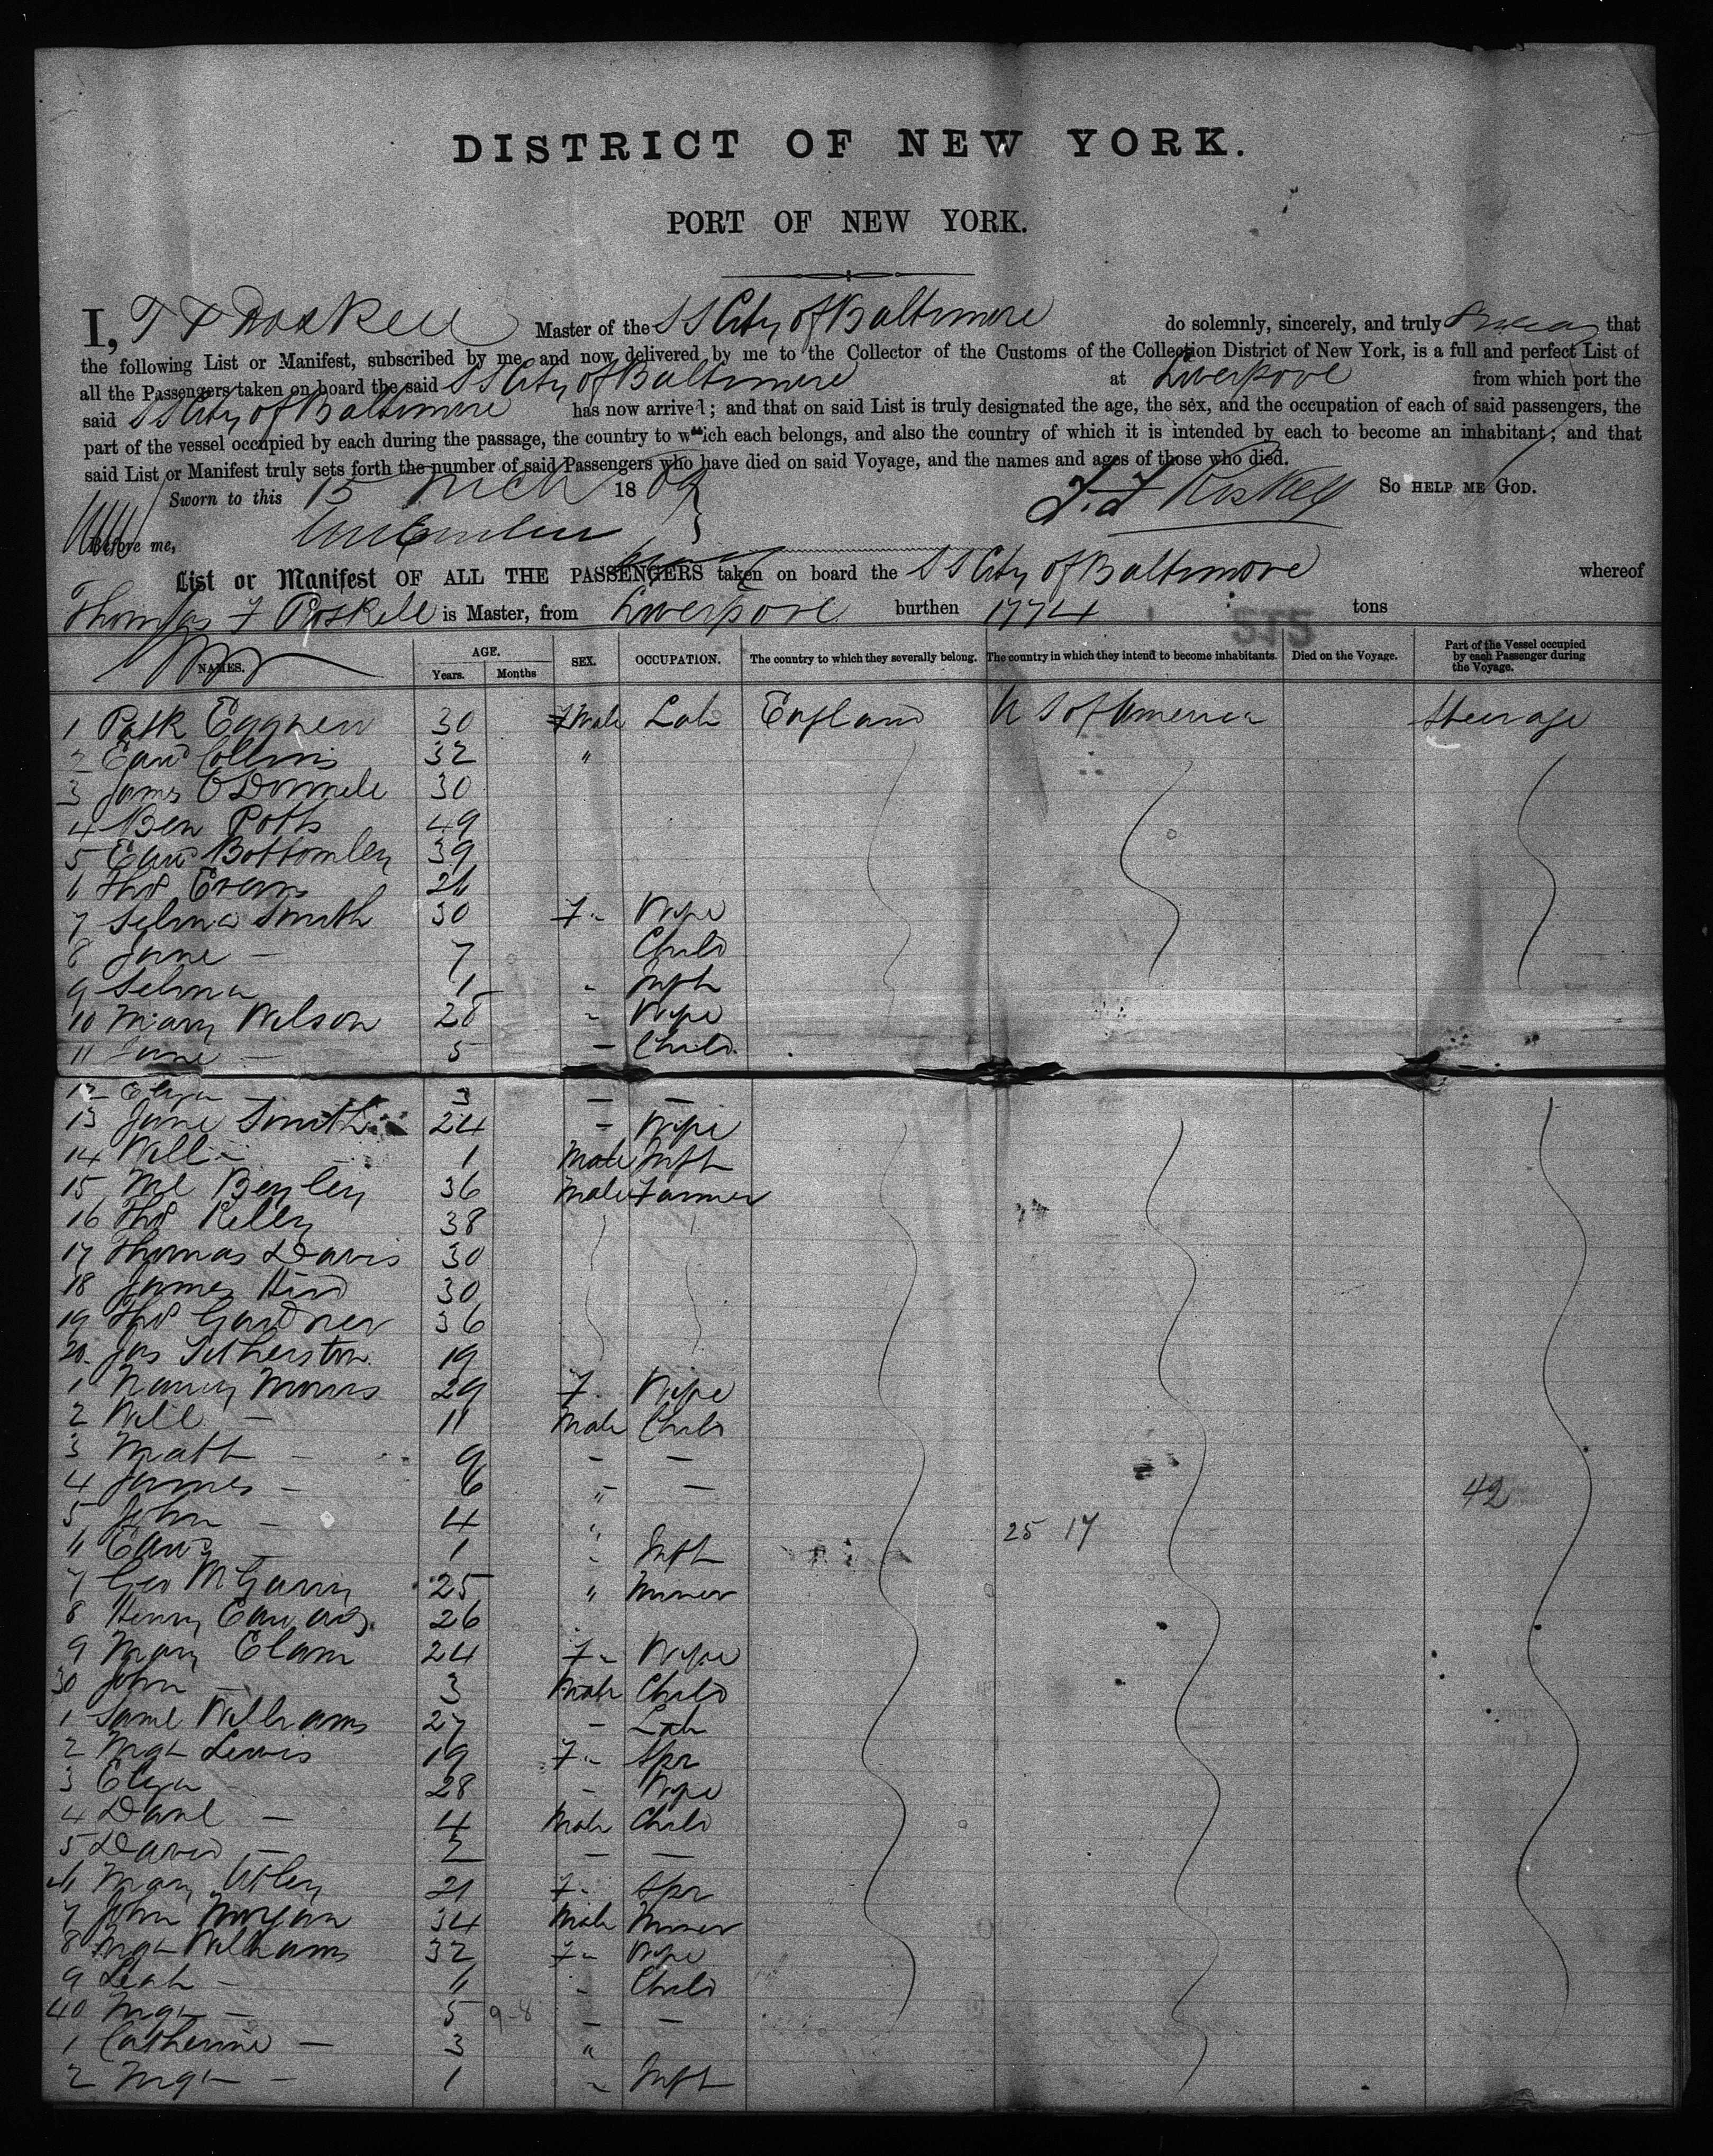 DISTRICT OF NEW YORK.
PORT OF NEW YORK.
I, T F Roskell Master of the S S City of Baltimore do solemnly, sincerely, and truly that
the following List or Manifest, subscribed by me, and now delivered by me to the Collector of the Customs of the Collection District of New York, is a full and perfect List of
all the Passengers taken on board the said S S City of Baltimore at Liverpool from which port the
said S S City of Baltimore has now arrived; and that on said List is truly designated the age, the sex, and the occupation of each of said passengers, the
part of the vessel occupied by each during the passage, the country to which each belongs, and also the country of which it is intended by each to become an inhabitant; and that
said List or Manifest truly sets forth the number of said Passengers who have died on said Voyage, and the names and ages of those who died.
Sworn to this 15 Mch 1869 T. F Roskell SO HELP ME GOD.
Before me,
List or Manifest OF ALL THE PASSENGERS taken on board the S S City of Baltimore whereof
Thomas F Roskell is Master, from Liverpool burthen 1774 tons
NAMES. AGE. Years. Months SEX. OCCUPATION. The country to which they severally belong. The country in which they intend to become inhabitants. Died on the Voyage. Part of the Vessel occupied by each Passenger during the Voyage.
1 Patk 30 Male Lab England U S of America Steerage
2 Edwd Collins 32 "
3 James O Donnell 30
4 Ben Potts 49
5 Edwd Bottomley 39
6 Thos Evans 26
7 Selina Smith 30 F " Wife
8 Jane - 7 Child
9 Selina 1 " Inft
10 Mary Wilson 28 " Wife
11 Jane - 5 - Child
12 Eliza - 3 - -
13 Jane Smith 24 - Wife
14 Will - 1 Male Inft
15 Ml Beyley 36 Male Farmer
16 Thos Kelly 38
17 Thomas Davis 30
18 James Hird 30
19 Thos Gardner 36
20. Jas 19
1 Nancy Morris 29 F. Wife
2 Will - 11 Male Child
3 Matt - 9 - -
4 James - 6 " - 42
5 John - 4 " 25 17
6 Edwd - 1 " Inft
7 Geo McGarry 25 " Miner
8 Henry Edwards 26
9 Mary Elam 24 F " Wife
30 John - 3 Male Child
1 Saml Williams 27 - Lab
2 Mgt Lewis 19 F " Spr
3 Eliza - 28 - Wife
4 Danl - 4 Male Child
5 David - 2 - -
6 Mary 21 F " Spr
7 John Morgan 34 Male Miner
8 Mgt Williams 32 F " Wife
9 Leah - 11 " Child
40 Mgt - 5 9-8 - -
1 Catherine - 3 "
2 Mgt - 1 " Inft